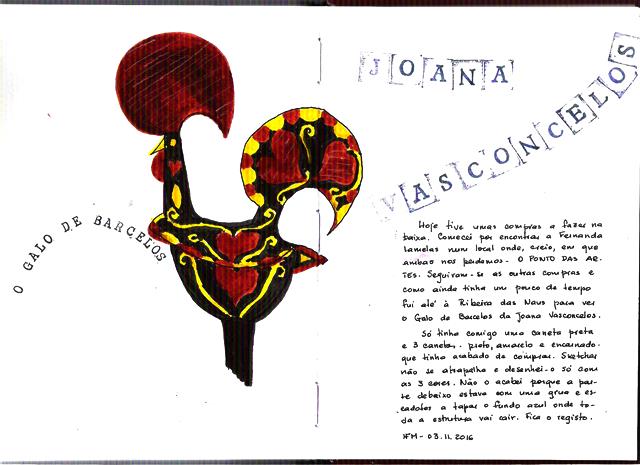 O GALO DE BARCELOS
JOANA
VASCONCELOS
Hoje tive umas compras a fazer na
baixa. Comecei por encontrar a Fernanda
Lamelas num local onde, creio, em que
ambas nos perdemos - O PONTO DAS AR-
TES. Seguiram-se as outras compras e
como ainda tinha um pouco de tempo
fui até à Ribeira das Naus para ver
o Galo de Barcelos da Joana Vasconcelos.
Só tinha comigo uma caneta preta
e 3 canetas - preto, amarelo e encarnado -
que tinha acabado de comprar. Sketcher
não se atrapalha e desenhei-o só com
as 3 cores. Não o acabei porque a par-
te debaixo estava com uma grua e es-
cadotes a tapar o fundo azul onde to-
da a estrutura vai cair. Fica o registo.
03.11.2016